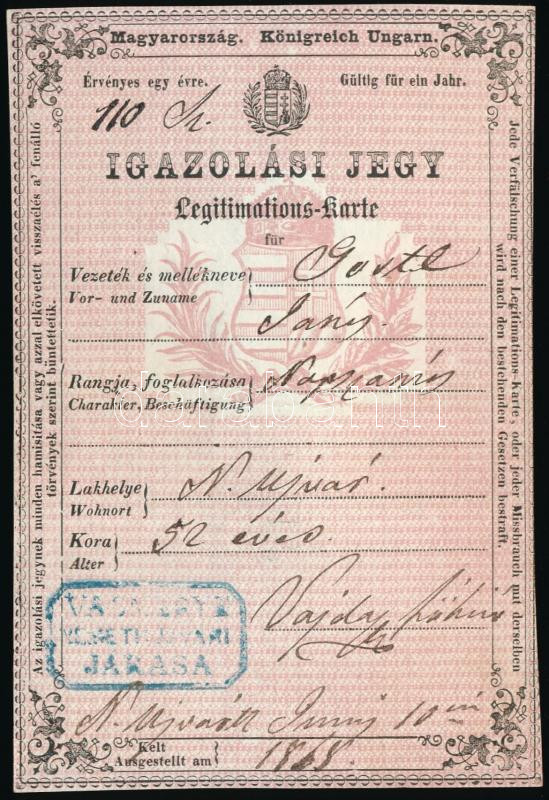 Magyarország. Königreich Ungarn.
Érvényes egy évre. Gültig für ein Jahr.
110
IGAZOLÁSI JEGY
Legitimations-Karte
für
Vezeték és mellékneve
Vor- und Zuname
Rangja, foglalkozása
Charakter, Beschäftigung
darabanth
Lakhelye N. Ujvár.
Wohnort
Kora 52 éves.
Alter
Vajda
JÁRÁSA
N. Ujvártt Junij 10én
Kelt
Ausgestellt am 1868.
Az igazolási jegynek minden hamisítása vagy azzal elkövetett visszaélés a' fenálló
törvények szerint büntettetik.
Jede Verfälschung einer Legitimations-Karte, oder jeder Missbrauch mit derselben
wird nach den bestehenden Gesetzen bestraft.